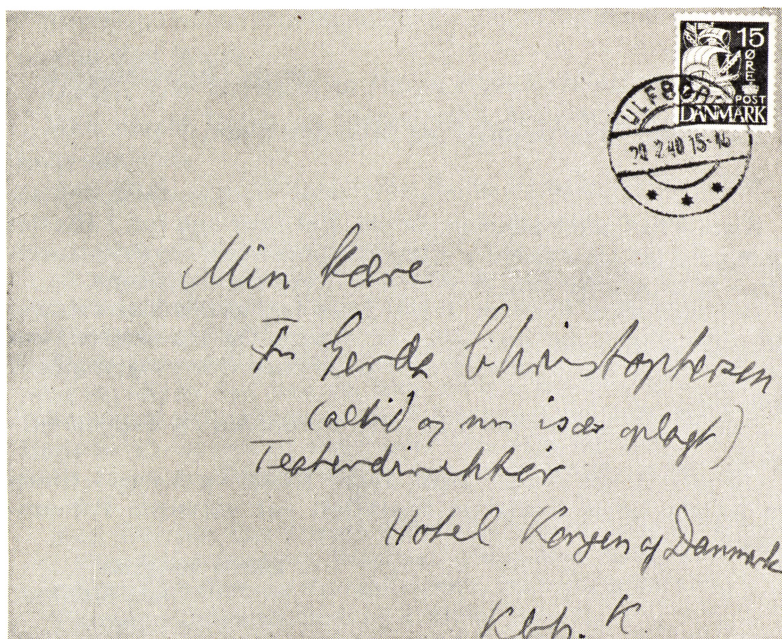 15
ØRE
POST
DANMARK
ULFBORG
20 2.40 15-16
Min kære
Fru Gerda Christophersen
(altid og nu især oplagt)
Teaterdirektør
Hotel Kongen af Danmark
Kbh. K.